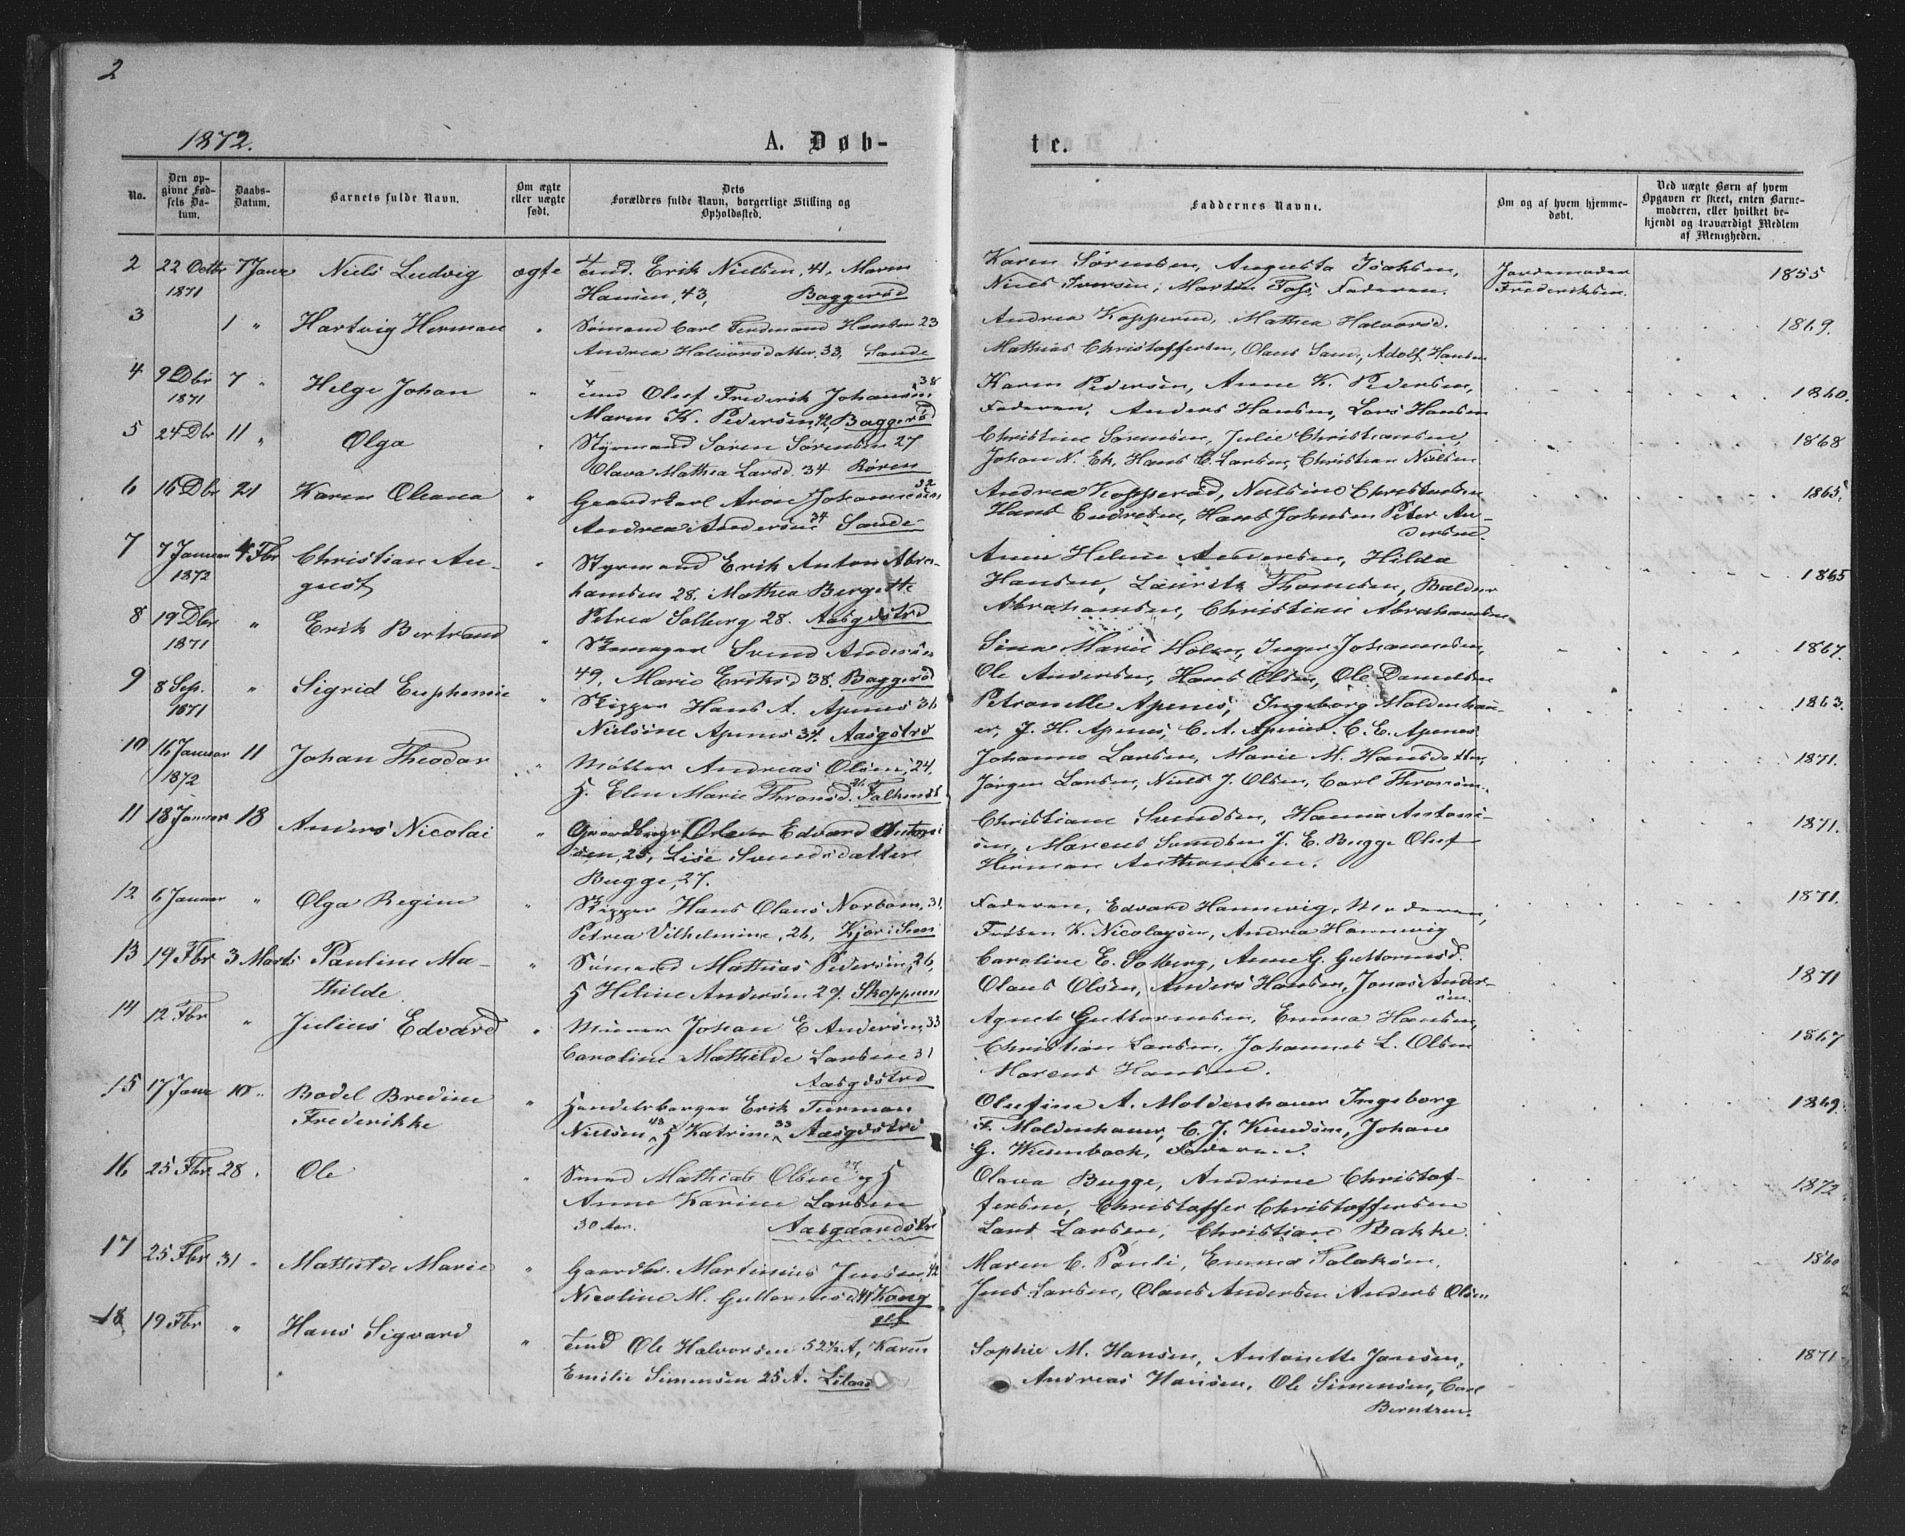 2
1872.
A. Døb-
te.
No.
Den op-
givne Fød-
sels Da-
tum.
Daabs-
Datum.
Barnets fulde Navn.
Om ægte
eller uægte
født.
Dets
Forældres fulde Navn, borgerlige Stilling og
Opholdssted.
Faddernes Navne.
Om og af hvem hjemme-
døbt.
Ved uægte Børn af hvem
Opgaven er skeet, enten Barne-
moderen, eller hvilket be-
kjendt og troværdigt Medlem
af Menigheden.
2 22 Octbr 7 Janr Niels Ludvig ægte Erik Nielsen, 41, Maren
1871 Hansen, 43, Baggerød
Karen Sørensen, Augusta Isaksen, Jordemoder 1855
Niels Iversen, Martin Fojs, Faderen. Frederiksen.
3 1 " Hartvig Herman " Sømand Carl Ferdinand Hansen 23
Andrea Halvorsdatter, 33, Sande
Andrea Kopperud, Mathea Halvorsd. 1869.
Mathias Christoffersen, Olaus Sand, Adolf Hansen
4 9 Dbr 7 " Helge Johan " Oluf Frederik Johansen 38
1871 Maren K. Pedersen, 42, Baggerød
Karen Pedersen, Anne K. Pedersen, 1860.
Faderen, Anders Hansen, Lars Hansen
5 24 Dbr 11 " Olga " Styrmand Søren Sørensen 27
Olava Mathea Larsd. 34 Røren
Christine Sørensen, Julie Christiansen, 1868
Johan N. Ek, Hans C. Larsen, Christian Nielsen
6 16 Dbr 21 Karen Oleana " Gaardskarl Aron Johannesen 32
Andrea Andersen 34 Sande
Andrea Kopperød, Nielsine Christensen 1865.
Hans Endresen, Hans Johnsen Peter An-
dersen.
7 7 Januar 4 Fbr Christian Au- " Styrmand Erik Anton Abra-
1872 gust hamsen 28, Mathea Bergette
Petrea Solberg, 28. Aasgdstrd
Anne Helene Andersen, Hilda
Hansen, Lauritz Thomsen, Baldur 1865
Abrahamsen, Christian Abrahamsen
8 19 Dbr " Erik Bertrand " Skomager Svend Andersen
1871 49, Marie Eriksd 38. Baggerød
Sina Marie Holm, Inger Johannesen, 1867.
Ole Andersen, Hans Olsen, Ole Danielsen
9 8 Sep. " Sigrid Euphemie " Skipper Hans A. Apenes 36
1871 Nielsine Apenes 34. Aasgstrd
Petronelle Apenes, Ingeborg Moldenhau- 1863.
er, J. H. Apenes, C. A. Apenes. C. E. Apenes
10 16 Januar 11 Johan Theodor " Møller Andreas Olsen, 24,
1872 H. Elen Marie Thronsd.
Johanne Larsen, Marie M. Hansdatter, 1871.
Jørgen Larsen, Niels J. Olsen, Carl Thronsen.
11 18 Januar 18 Anders Nicolai " Edvard
25, Lise Svendsdatter
Bugge, 27.
Christiane Svendsen, Hanna Antoni- 1871.
sen, Marcus Svendsen J. E. Bugge Oluf
Herman Anthonsen.
12 6 Januar " Olga Regine " Skipper Hans Olaus Norbom, 31,
Petrea Vilhelmine, 26,
Faderen, Edvard Hannevig, Moderen, 1871.
K. Nicolaysen, Andrea Hannevig
13 19 Fbr 3 Marts Pauline Ma- " Sømand Mathias Pedersen, 26,
thilde H Heline Andersen 29. Skoppum
Caroline E. Solberg, Anne G. Guttormsd. 1871
Olaus Olsen, Anders Hansen, Jonas Ander-
sen.
14 12 Fbr " Julius Edvard " Murer Johan E Andersen, 33
Caroline Mathilde Larsen 31
Aasgdstrd
Agnete Guttormsen, Emma Hansen,
Christian Larsen, Johannes L. Olsen 1867
Marcus Hansen.
15 17 Janr 10 " Bodel Bredine " Handelsborger Erik Furman
Frederikke Nielsen 43 H Katrine 33 Aasgdstrd
Olufine A. Moldenhauer Ingeborg 1869.
F. Moldenhauer, C. J. Knudsen, Johan
G. Faderen.
16 25 Fbr 28 " Ole " Smed Mathias Olsen 27 og H
Anne Karine Larsen
30 Aar. Aasgaardstr
Olava Bugge, Andrine Christof- 1872
fersen, Christoffer Christoffersen
Lars Larsen, Christian Bakke.
17 25 Fbr 31 " Mathilde Marie " Gaardbr. Martinius Jensen 42
Nicoline M. Guttormsd 41
Maren C. Pauli, Emma 1860
Jens Larsen, Olaus Andersen Anders Olsen
18 19 Fbr " Hans Sigvard " Ole Halvorsen 52½ A, Karen
Emilie Simensen 25 A.
Sophie M. Hansen, Antonette Jansen, 1871
Andreas Hansen, Ole Simensen, Carl
Berntsen.